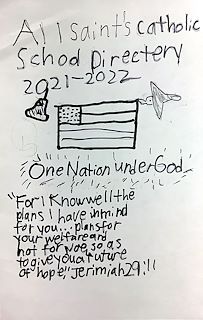 All Saint's Catholic
School Directery
2021-2022
One Nation under God
"For I Know well the
plans I have in mind
for you... plans for
your welfare and
not for woe, so as
to give you a future
of hope," Jerimiah 29:11